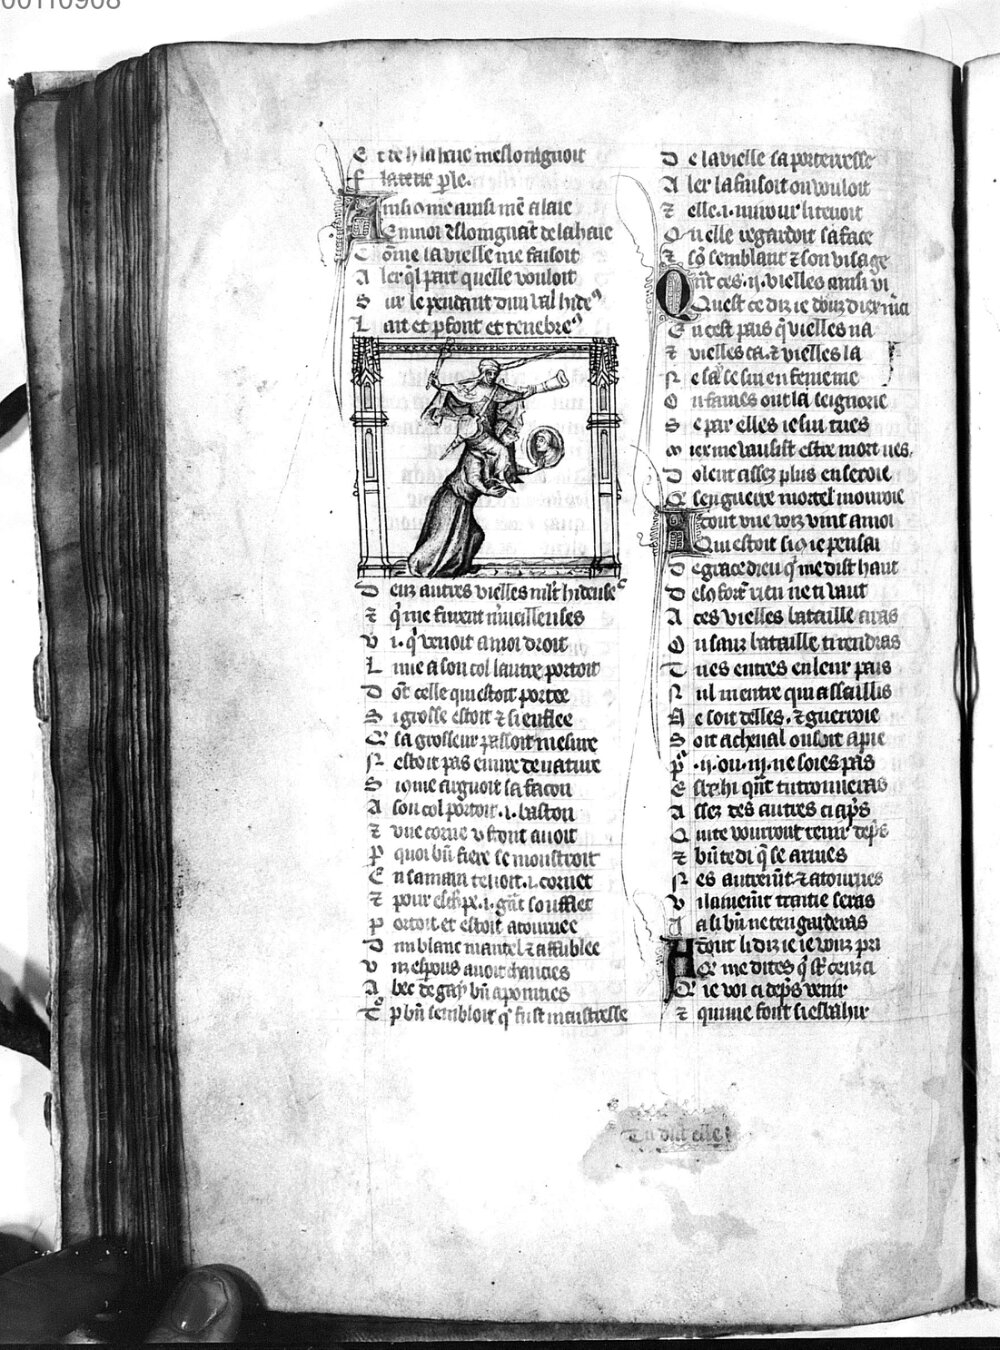 00110908
E t de la haie meslongnoit
F laterie ple.
A insi q̄ me ainsi mē alaie
E n moi eslongnāt de la haie
C ōme la vielle me faisoit
A ler q̄l part quelle vouloit
S ur le pendant dun val hide9
L ait et pfont et tenebre9
D eux autres vielles mlt hideuses
⁊ q̄ me furent mueilleuses
V i. q̄ venoit a moi droit
L une a son col lautre portoit
D ōt celle qui estoit portee
S i grosse estoit ⁊ si enflee
Q̄ sa grosseur passoit mesure
N estoit pas euure de nature
S i ome arguoit sa facon
A son col portoit .i. baston
⁊ une corne v front auoit
P quoi bn̄ fiere se moustroit
E n sa main tenoit .i. cornet
⁊ pour eschpe .i. gāt soufflet
P ortoit et estoit atournee
D un blanc mantel ⁊ affublee
V ns espons auoit chaucies
A bec de gay bn̄ aponities
T p bn̄ sembloit q̄ fust maistresse
D e la vielle sa porteresse
A ler la faisoit ou vouloit
⁊ elle .i. mirour li tenoit
O u elle regardoit sa face
⁊ sō semblant ⁊ son visage
Q ñt ces .ii. vielles ainsi vi
Quest ce dix ie doux diex
E n cest pais q̄ vielles na
⁊ vielles ca. ⁊ vielles la
N e sai se sui en femenie
O u fames ont la seignorie
S e par elles ie sui tues
M iex me vausist estre mort nes.
D olent assez plus en seroie
Q̄ sen guerre mortel mouroie
A tout vne voix vint a moi
Qui estoit si q̄ ie pensai
D e grace dieu q̄ me dist haut
D elo fort rien ne ti vaut
A ces vielles bataille aras
O u sanz bataille ti rendras
T u es entres en leur pais
N ul ni entre qui assaillis
N e soit delles. ⁊ guerroie
S oit a cheual ou soit a pie
P .ii. ou .iij. ne soies pas
E sbahi qñt tu trouueras
A ssez des autres ci aps
Q ui te vourront tenir deps
⁊ bn̄ te di q̄ se armes
N es autremt̄ ⁊ atournes
V ilainemt̄ traitie seras
I a si bn̄ ne ten garderas
A dōnt li dix ie ie vous pri
Q̄ me dites q̄ st ceuz ci
Q̄ ie voi ci deps venir
⁊ qui me font si esbahir
Tu dist elle